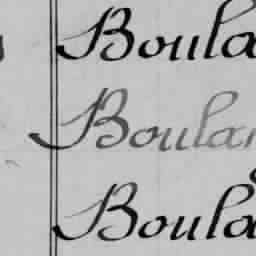 Boula
Boular
Boula